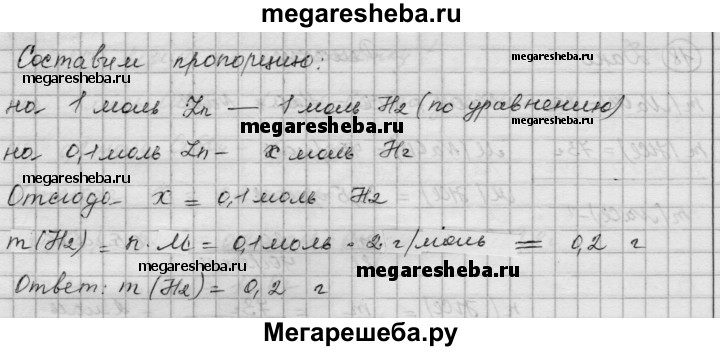 megaresheba.ru
Составим пропорцию:
megaresheba.ru
megaresheba.ru
на 1 моль Zn — 1 моль H2 (по уравнению)
megaresheba.ru
megaresheba.ru
на 0,1 моль Zn - x моль H2
megaresheba.ru
Отсюда x = 0,1 моль H2
m(H2) = n · M = 0,1 моль · 2 г/моль = 0,2 г
megaresheba.ru
megaresheba.ru
Ответ: m(H2) = 0,2 г
Мегарешеба.ру